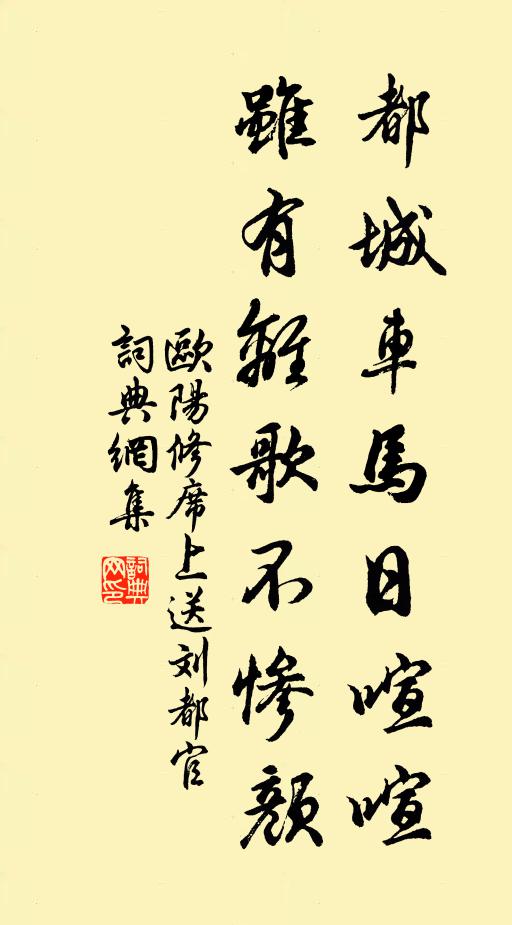 都城車馬日喧喧
雖有離歌不慘顏
歐陽修席上送刘都官
詞典網集
詞典
网印